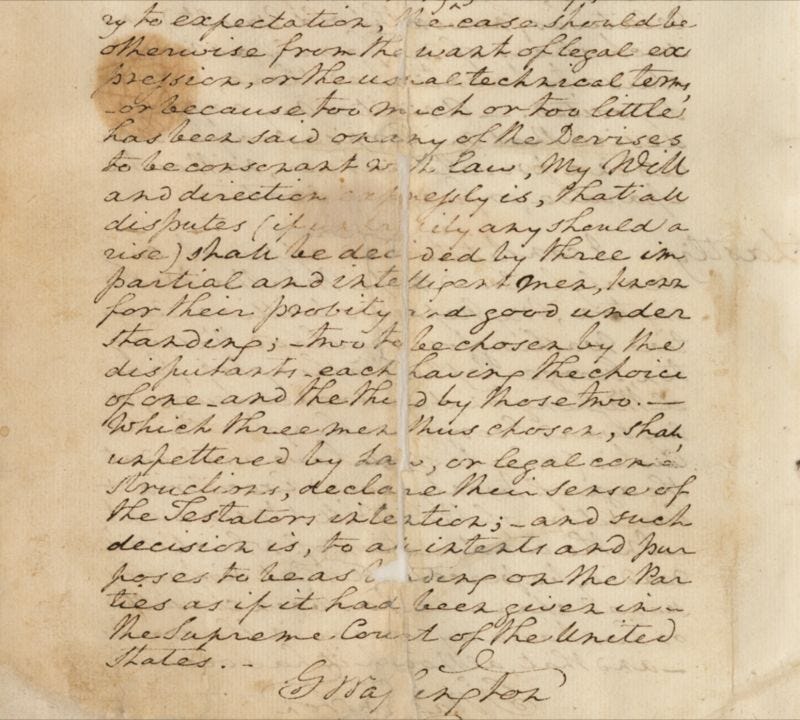 ry to expectation, the case should be
otherwise from the want of legal ex
pression, or the usual technical terms,
or because too much or too little
has been said on any of the Devises
to be consonant with law, My Will
and direction expressly is, that all
disputes (if unhappily any should a
rise) shall be decided by three im
partial and intelligent men, known
for their probity and good under
standing; - two to be chosen by the
disputants - each having the choice
of one - and the third by those two. —
Which three men thus chosen, shall,
unfettered by Law, or legal con
structions, declare their sense of
the Testators intention; - and such
decision is, to all intents and pur
poses to be as binding on the Par
ties as if it had been given in -
the Supreme Court of the United
States. -
G Washington